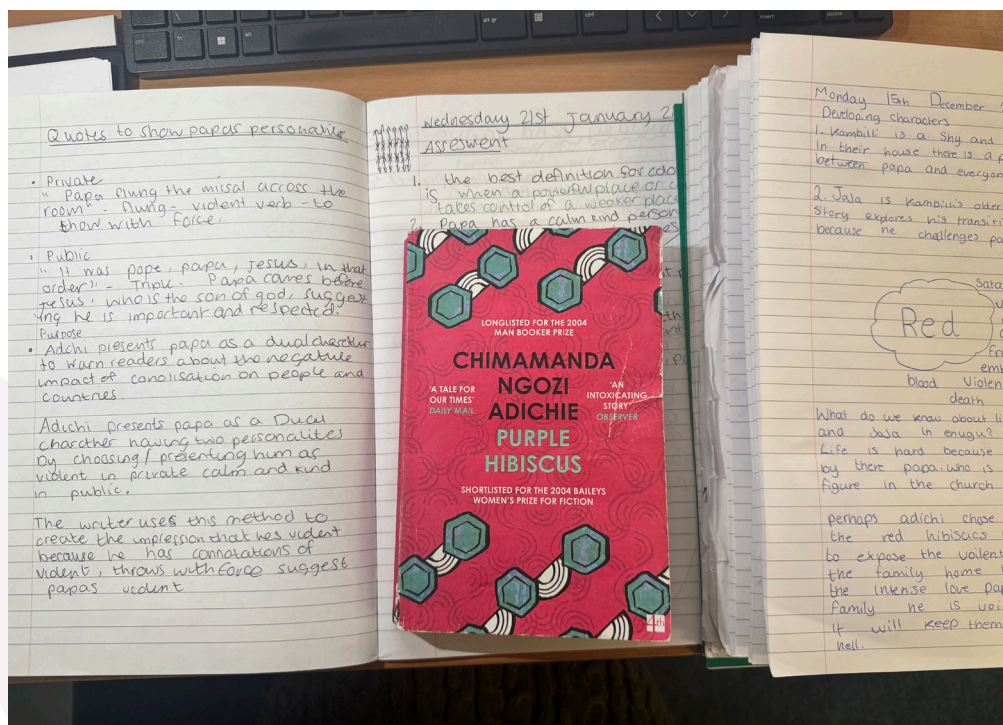 alt gr
ctrl
insert
delete
ctrl
fn
alt
Quotes to show papas personalite
• Private
" Papa flung the missal across the
room" - flung - violent verb - to
thow with force.
• Public
" It was pope, papa, Jesus, in that
order" - Triple. Papa comes before
Jesus, who is the son of god, suggest
ing he is important and respected.
Purpose
• Adchi presents papa as a dual charcther
to warn readers about the negative
impact of conolisation on people and
countries
Adichi presents papa as a Ducal
charcther having two personalites
by choosing / presenting him as
violent in private calm and kind
in public.
The writer uses this method to
create the impression that hes violent
because he has connotations of
violent, throws with force suggests
papas violent
Wednesday 21st January 2
Assesment
1. the best definition for colo
is when a powerful place or c
takes control of a weaker place
2. Papa has a calm kind person
LONGLISTED FOR THE 2004
MAN BOOKER PRIZE
CHIMAMANDA
NGOZI
ADICHIE
'A TALE FOR
OUR TIMES'
DAILY MAIL
'AN
INTOXICATING
STORY'
OBSERVER
PURPLE
HIBISCUS
SHORTLISTED FOR THE 2004 BAILEYS
WOMEN'S PRIZE FOR FICTION
4th
Monday 15th December
Developing characters
1. Kambilli is a Shy and
In their house there is a p
between papa and everyon
2. JaJa is Kambili's older
Story explores his transiti
because he challenges pa
Sata
Red
Fr
em
blood Violen
death
What do we know about li
and JaJa in enugu?
Life is hard because
by there papa. who is
figure in the church
perhaps adichi chose
the red hibisacs
to expose the voilent
the family home
the intense love Pap
family he is voi
It will keep them
hell.